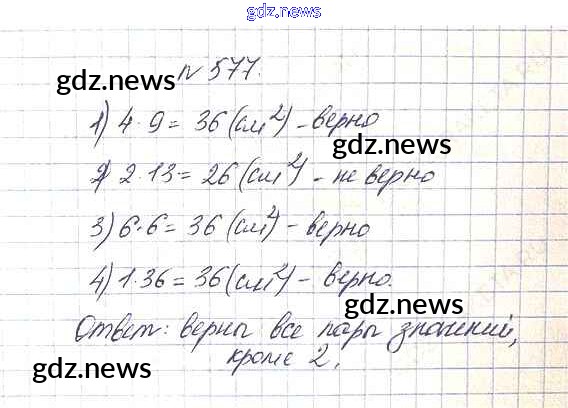 gdz.news
№ 577.
gdz.news
1) 4 · 9 = 36 (см²) - верно
gdz.news
2) 2 · 13 = 26 (см²) - не верно
3) 6 · 6 = 36 (см²) - верно
4) 1 · 36 = 36 (см²) - верно.
gdz.news
Ответ: верны все пары значений,
кроме 2.
gdz.news